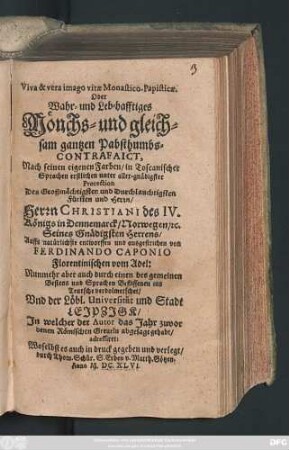 3
Viva & vera imago vitæ Monastico-Papisticæ.
Oder
Wahr- und Leb-hafftiges
Mönchs- und gleich-
sam gantzen Pabsthumbs-
CONTRAFAICT,
Nach seinen eigenen Farben/ in Toscanischer
Sprachen erstlichen unter aller-gnädigster
Protection
Des Großmächtigsten und Durchlauchtigsten
Fürsten und Herrn/
Herrn CHRISTIANI des IV.
Königs in Dennemarck/ Norwegen/ ꝛc.
Seines Gnädigsten Herrens/
Auffs natürlichste entworffen und ausgestrichen von
FERDINANDO CAPONIO
Florentinischen vom Adel:
Nunmehr aber auch durch einen des gemeinen
Bestens und Sprachen Beflissenen ins
Teutsche verdolmetschet/
Und der Löbl. Universität und Stadt
LEIPZIGK/
In welcher der Autor das Jahr zuvor
denen Römischen Greueln abgesagt gehabt/
adressiret:
Woselbst es auch in druck gegeben und verlegt/
durch Thom. Schür. S. Erben v. Matth. Götzen,
Anno M. DC. XLVI.